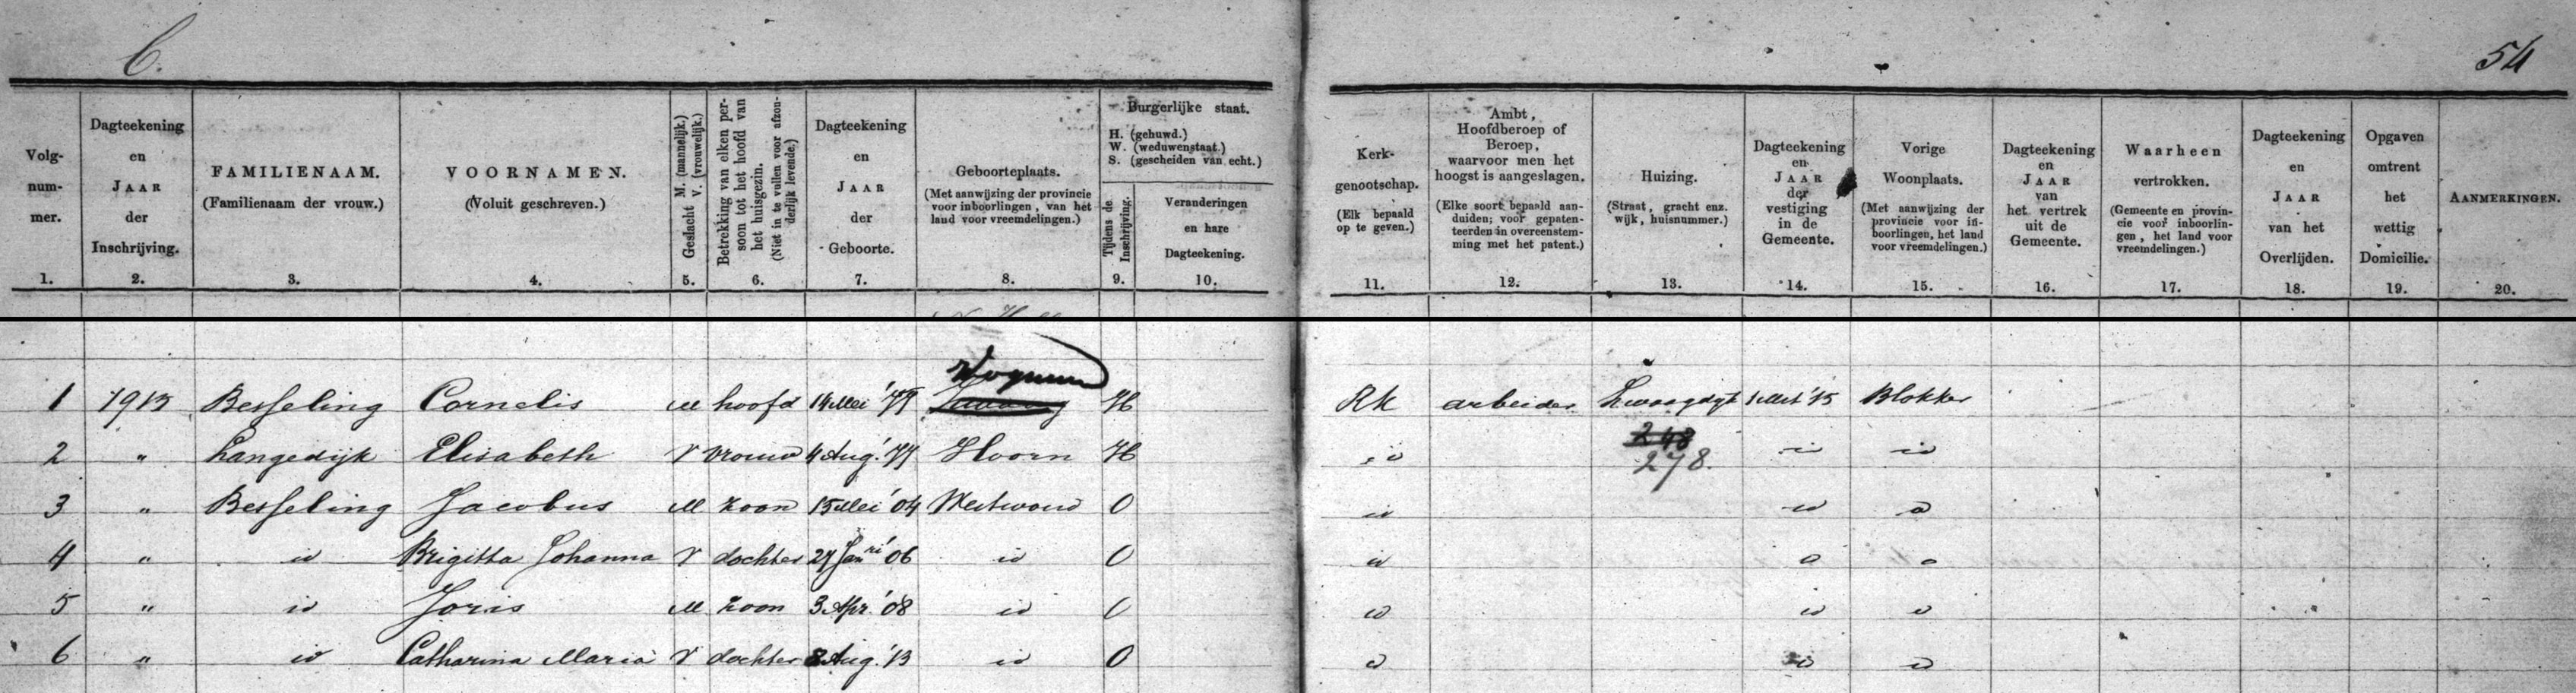 C.
54
Volg-nummer. 1.
Dagteekening en JAAR der Inschrijving. 2.
FAMILIENAAM. (Familienaam der vrouw.) 3.
VOORNAMEN. (Voluit geschreven.) 4.
Geslacht M. (mannelijk.) V. (vrouwelijk.) 5.
Betrekking van elken persoon tot het hoofd van het huisgezin. (Niet in te vullen voor afzonderlijk levende.) 6.
Dagteekening en JAAR der Geboorte. 7.
Geboorteplaats. (Met aanwijzing der provincie voor inboorlingen, van het land voor vreemdelingen.) 8.
Burgerlijke staat. H. (gehuwd.) W. (weduwenstaat.) S. (gescheiden van echt.)
Tijdens de Inschrijving. 9.
Veranderingen en hare Dagteekening. 10.
Kerk-genootschap. (Elk bepaald op te geven.) 11.
Ambt, Hoofdberoep of Beroep, waarvoor men het hoogst is aangeslagen. (Elke soort bepaald aanduiden; voor gepatenteerden in overeenstemming met het patent.) 12.
Huizing. (Straat, gracht enz. wijk, huisnummer.) 13.
Dagteekening en JAAR der vestiging in de Gemeente. 14.
Vorige Woonplaats. (Met aanwijzing der provincie voor inboorlingen, het land voor vreemdelingen.) 15.
Dagteekening en JAAR van het vertrek uit de Gemeente. 16.
Waarheen vertrokken. (Gemeente en provincie voor inboorlingen, het land voor vreemdelingen.) 17.
Dagteekening en JAAR van het Overlijden. 18.
Opgaven omtrent het wettig Domicilie. 19.
AANMERKINGEN. 20.
Wognum
1 1915 Besseling Cornelis M hoofd 14 Mei '79 H RK arbeider Zwaagdijk 1 Mrt '15 Blokker
248
2 " Langedijk Elisabeth V vrouw 4 Aug. '77 Hoorn H id id id
278.
3 " Besseling Jacobus M zoon 15 Mei '04 Westwoud O id id id
4 " id Brigitta Johanna V dochter 27 Janri '06 id O id id id
5 " id Joris M zoon 3 Apr. '08 id O id id id
6 " id Catharina Maria V dochter 8 Aug. '13 id O id id id